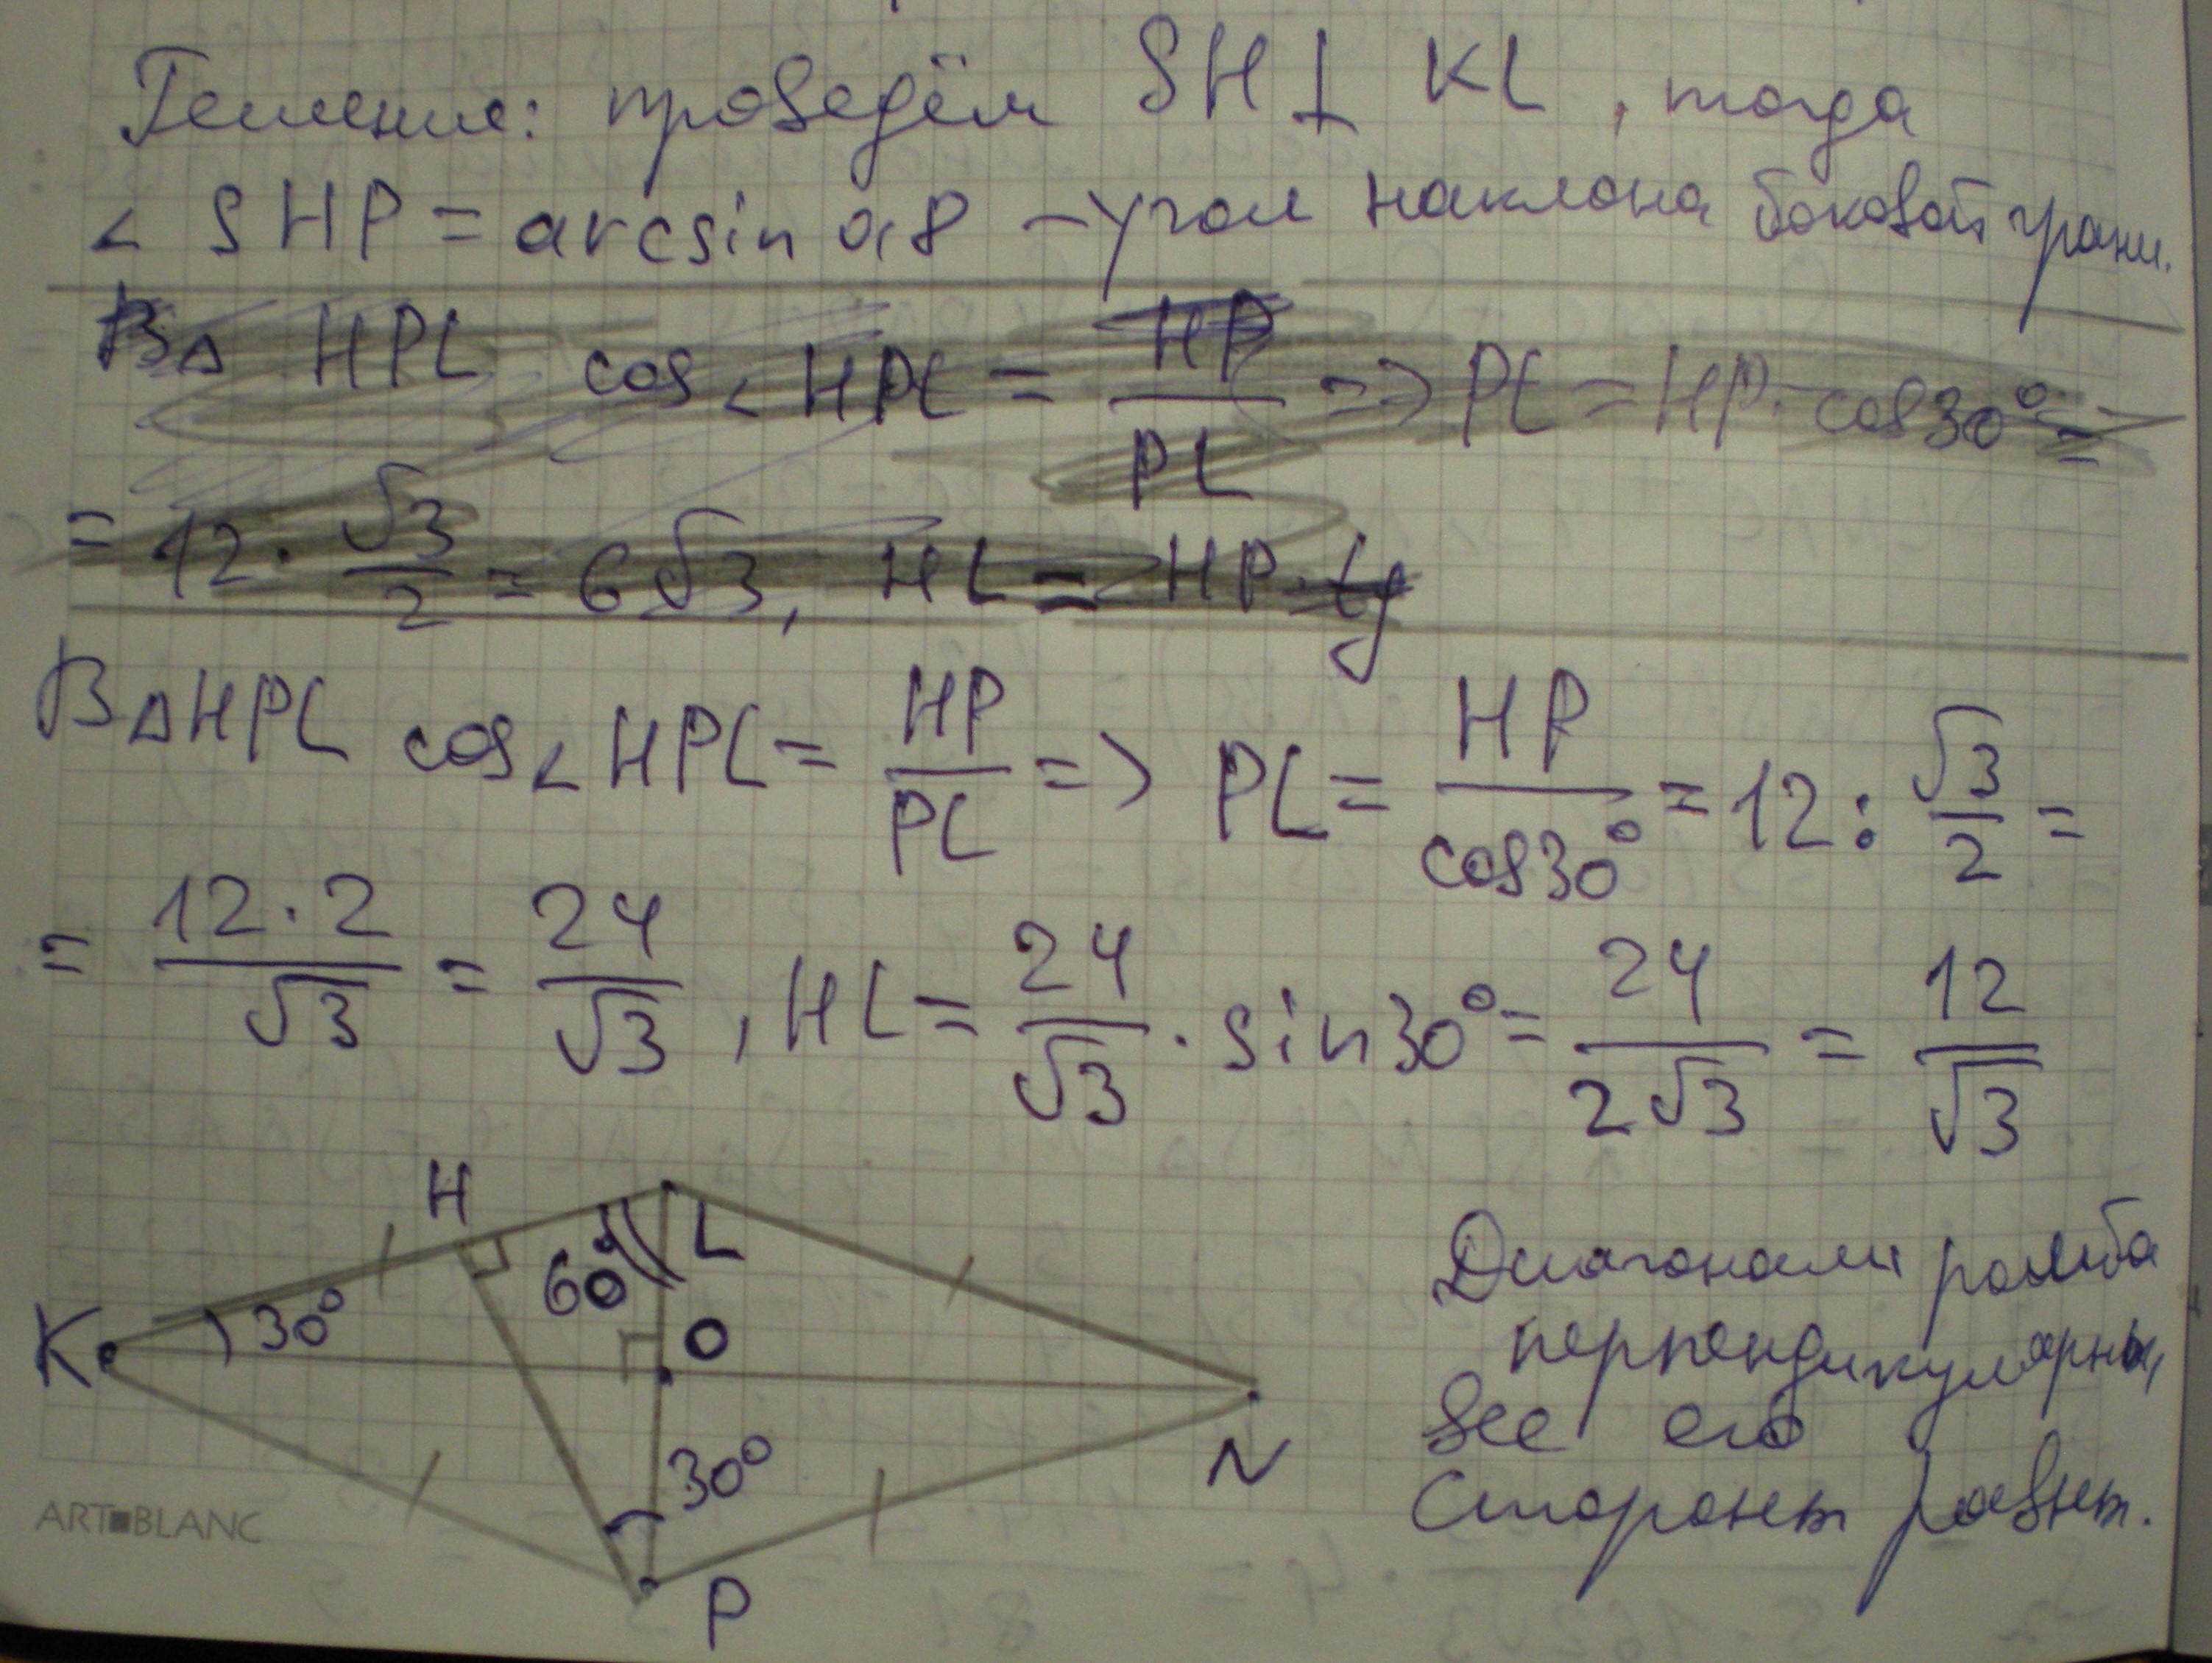 Решение: проведём SH ⊥ KL, тогда
∠ SHP = arcsin 0,8 – угол наклона боковой грани.
В Δ HPL cos ∠ HPL = HP / PL => PL = HP · cos30° =
= 12 · √3 / 2 = 6√3, HL = HP · tg
В Δ HPL cos ∠ HPL = HP / PL => PL = HP / cos30° = 12 : √3 / 2 =
= 12 · 2 / √3 = 24 / √3, HL = 24 / √3 · sin30° = 24 / 2√3 = 12 / √3
H
L
60°
K
30°
O
N
30°
P
Диагонали ромба
перпендикулярны,
все его
стороны равны.
ART BLANC